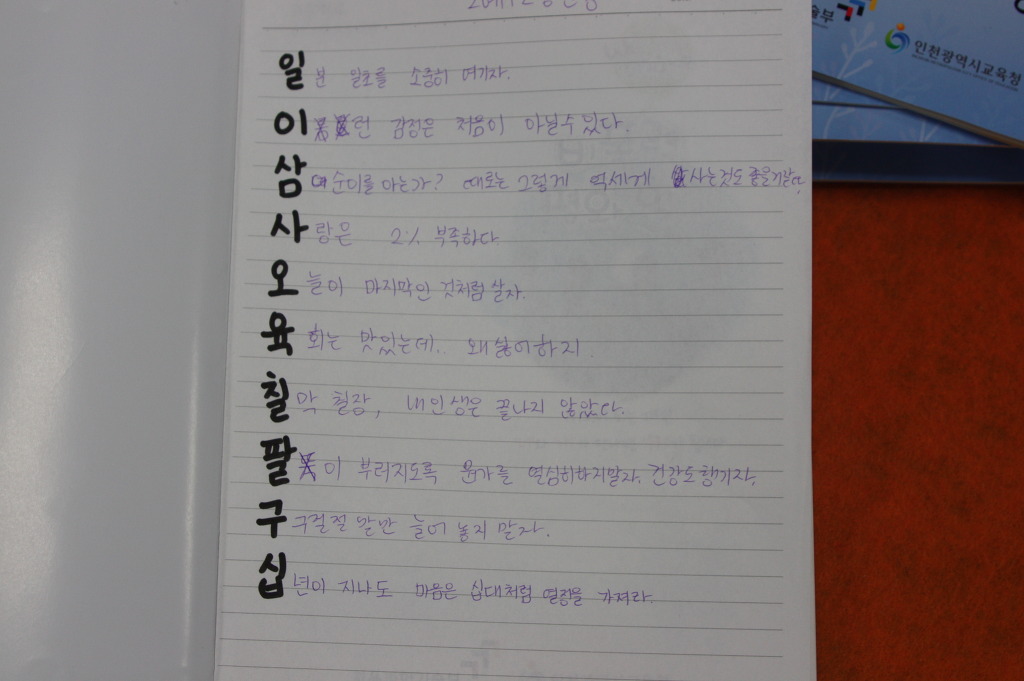 일분 일초를 소중히 여기자.
이런 감정은 처음이 아닐수 있다.
삼순이를 아는가? 때로는 그렇게 억세게 사는것도 좋을거같다.
사랑은 2% 부족하다.
오늘이 마지막인 것처럼 살자.
육회는 맛있는데.. 왜 싫어하지
칠막 칠장, 내 인생은 끝나지 않았다.
팔이 부러지도록 뭔가를 열심히하지말자. 건강도 챙기자.
구구절절 말만 늘어 놓지 말자.
십년이 지나도 마음은 십대처럼 열정을 가져라.
인천광역시교육청